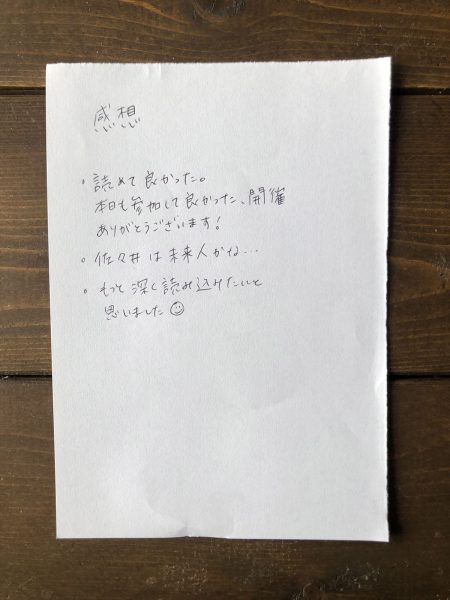 感想
・読めて良かった。
本日も参加して良かった、開催
ありがとうございます!
・佐々井は未来人かな...
・もっと深く読み込みたいと
思いました☺